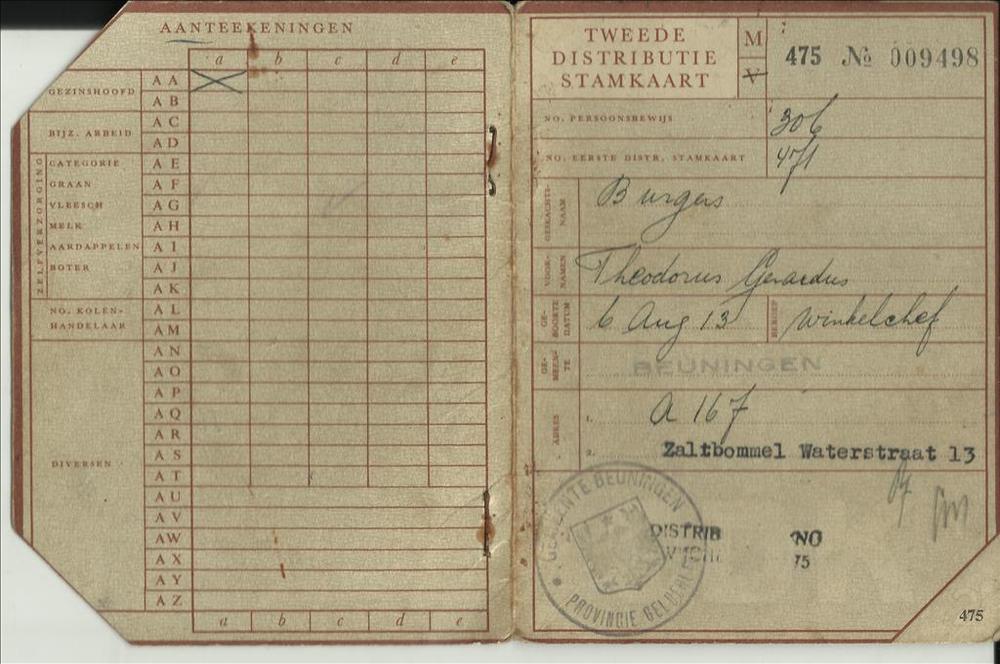 AANTEEKENINGEN
a b c d e
GEZINSHOOFD
AA
AB
BIJZ. ARBEID
AC
AD
ZELFVERZORGING
CATEGORIE AE
GRAAN AF
VLEESCH AG
MELK AH
AARDAPPELEN AI
BOTER AJ
AK
NO. KOLEN-
HANDELAAR
AL
AM
DIVERSEN
AN
AO
AP
AQ
AR
AS
AT
AU
AV
AW
AX
AY
AZ
a b c d e
TWEEDE
DISTRIBUTIE
STAMKAART
M
V
475 No 009498
NO. PERSOONSBEWIJS 306
NO. EERSTE DISTR. STAMKAART
GESLACHTS-
NAAM
Burgers
VOOR-
NAMEN
Theodorus Gerardus
GE-
BOORTE
DATUM
6 Aug 13
BEROEP
winkelchef
GE-
MEEN-
TE
BEUNINGEN
ADRES
1. A 167
2. Zaltbommel Waterstraat 13
GEMEENTE BEUNINGEN
PROVINCIE GELDERL
DISTRIB NO
75
475